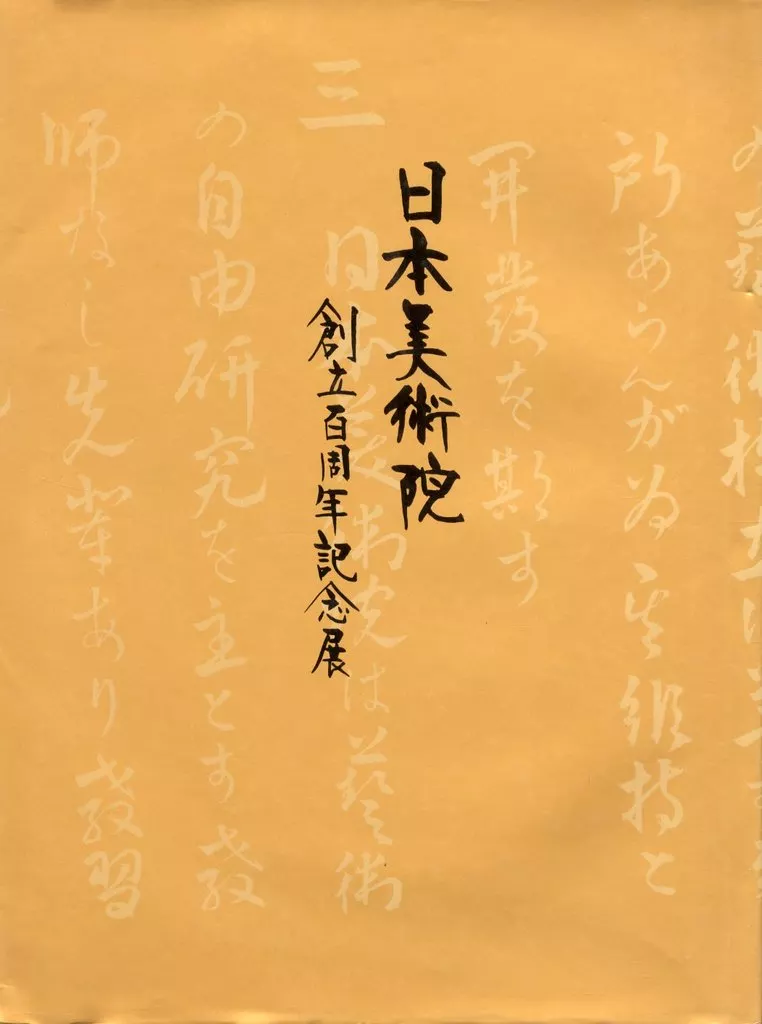 日本美術院
創立百周年記念展
所あらんが為 其維持と
開發を期す
三 日本美術院は藝術
の自由研究を主とす教
師なし先輩あり教習